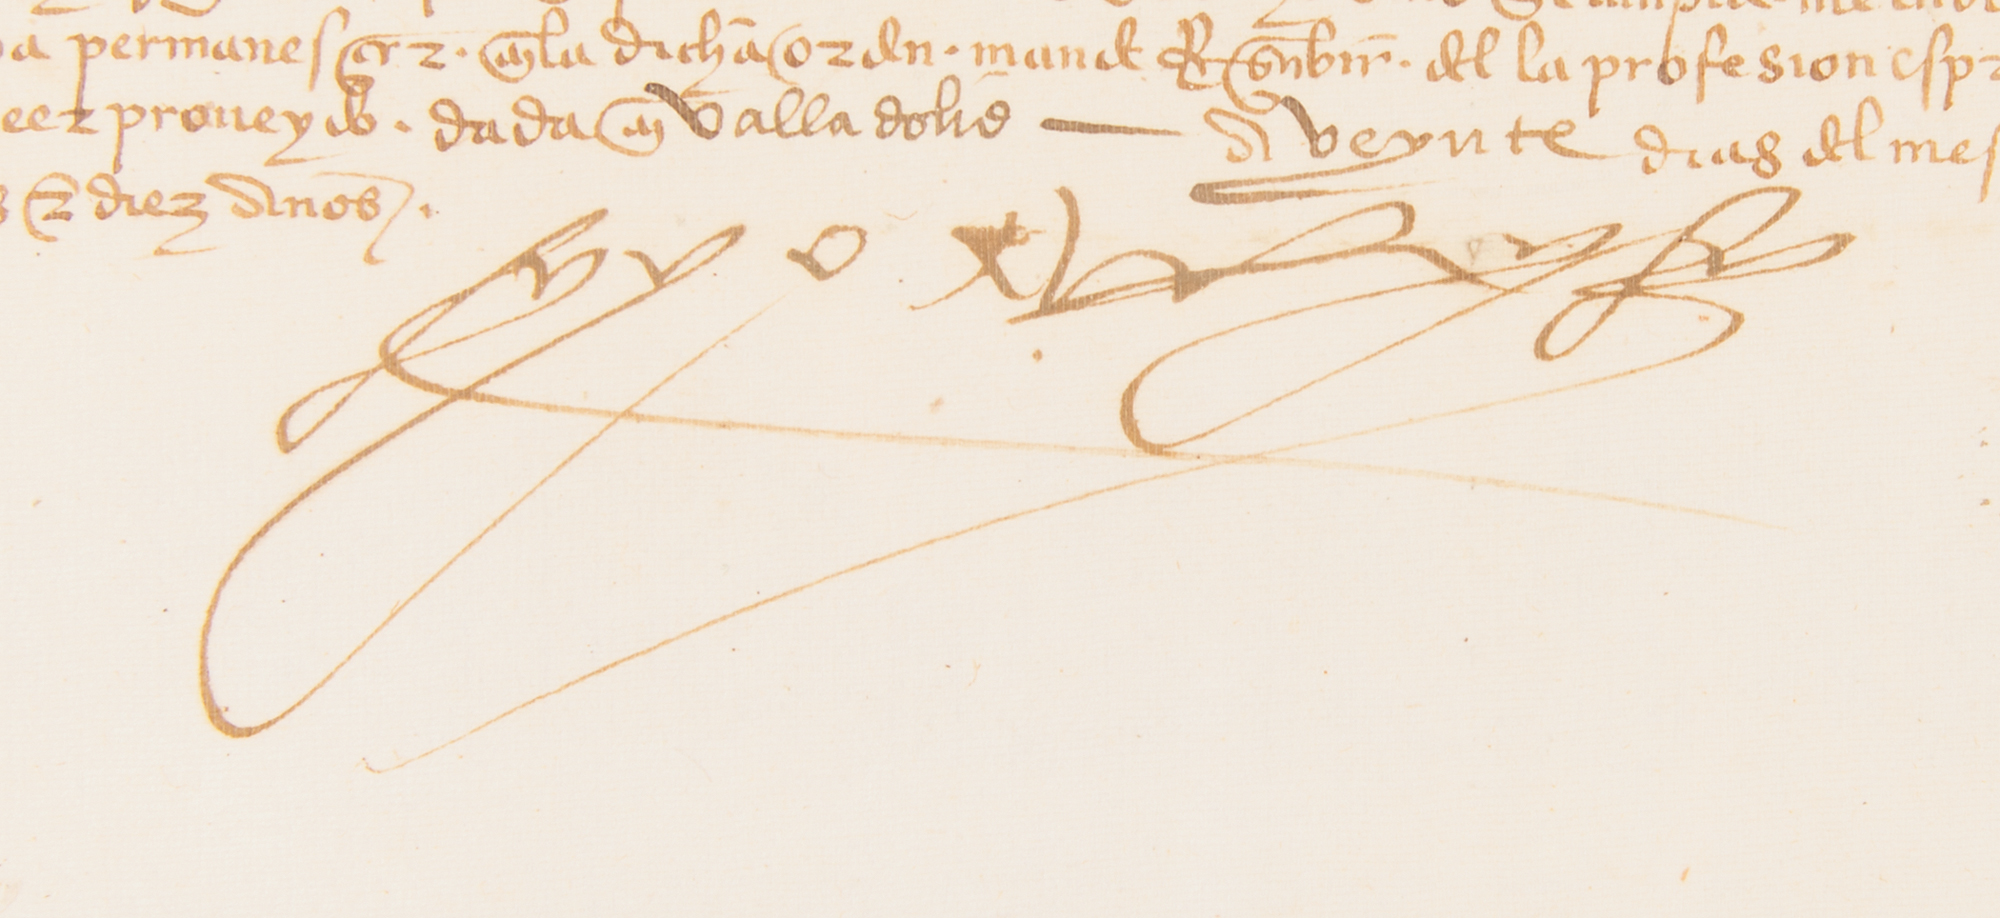 a permanesçer. en la dicha orden. mandé Resçenbir. del la profesion esp
eer proueydo. dada en Valladolid — A veynte dias del mes
s E diez Años.
yo el Rey